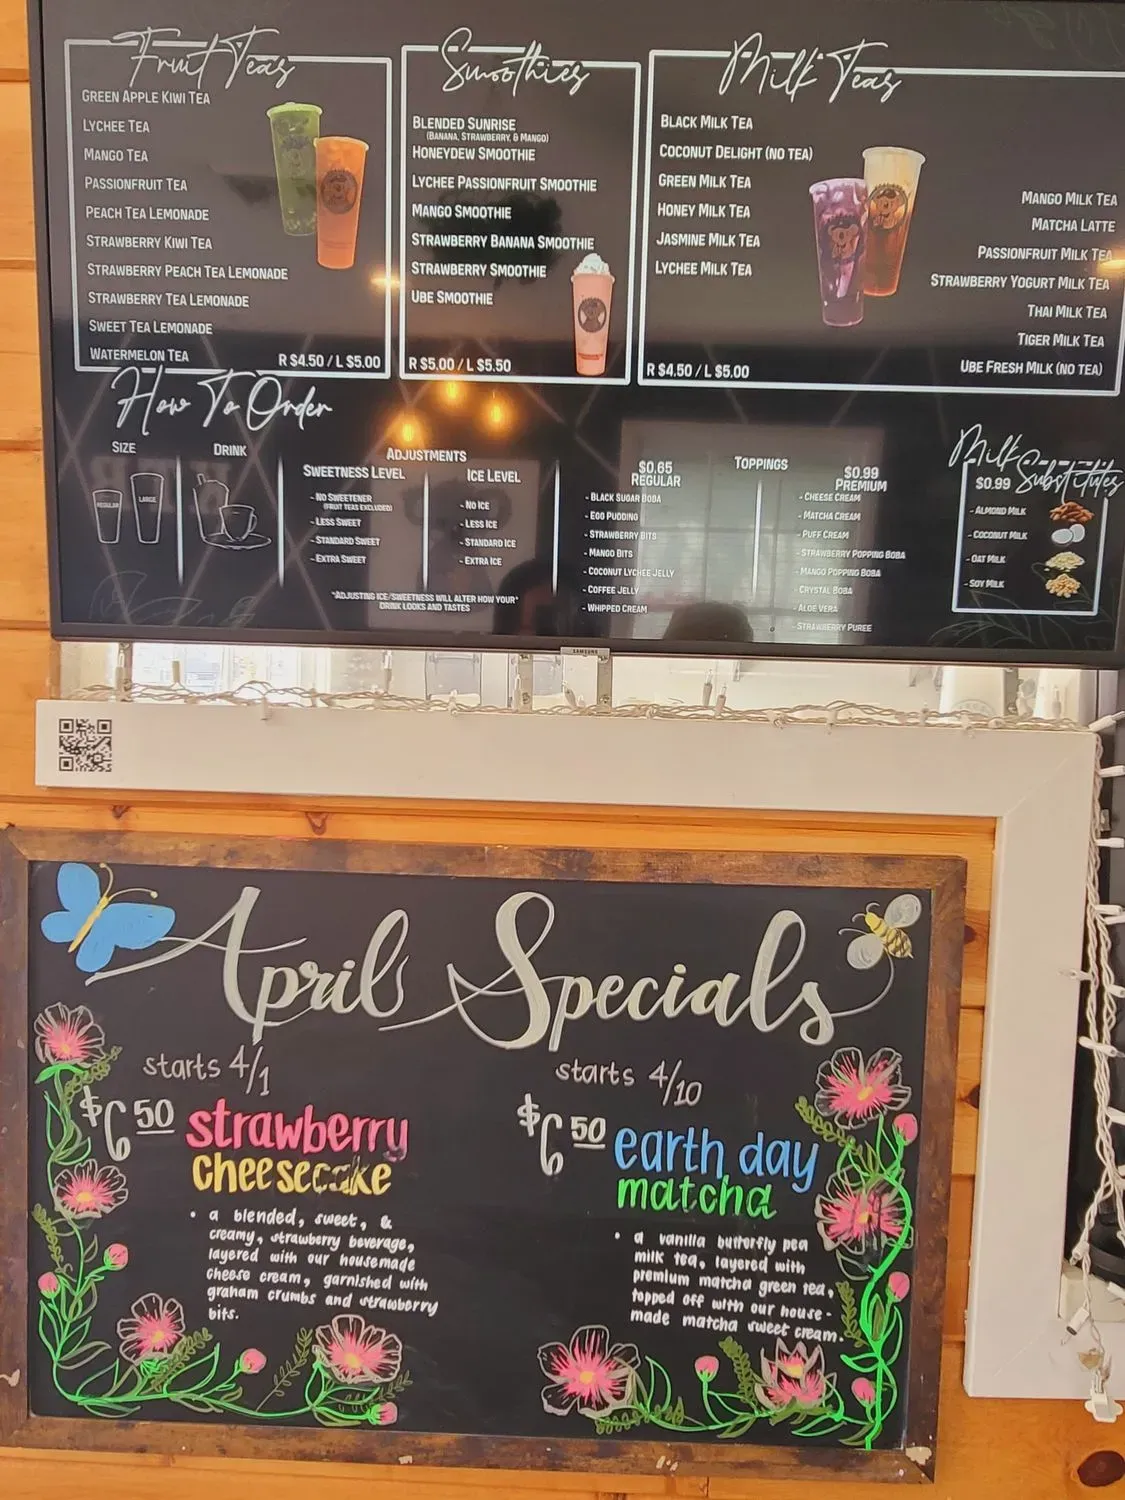 Fruit Teas
Green Apple Kiwi Tea
Lychee Tea
Mango Tea
Passionfruit Tea
Peach Tea Lemonade
Strawberry Kiwi Tea
Strawberry Peach Tea Lemonade
Strawberry Tea Lemonade
Sweet Tea Lemonade
Watermelon Tea
R $4.50 / L $5.00
Smoothies
Blended Sunrise
(Banana, Strawberry, & Mango)
Honeydew Smoothie
Lychee Passionfruit Smoothie
Mango Smoothie
Strawberry Banana Smoothie
Strawberry Smoothie
Ube Smoothie
R $5.00 / L $5.50
Milk Teas
Black Milk Tea
Coconut Delight (No Tea)
Green Milk Tea
Honey Milk Tea
Jasmine Milk Tea
Lychee Milk Tea
R $4.50 / L $5.00
Mango Milk Tea
Matcha Latte
Passionfruit Milk Tea
Strawberry Yogurt Milk Tea
Thai Milk Tea
Tiger Milk Tea
Ube Fresh Milk (No Tea)
How To Order
Size
Regular
Large
Drink
Adjustments
Sweetness Level
- No Sweetener
(Fruit Teas Excluded)
- Less Sweet
- Standard Sweet
- Extra Sweet
Ice Level
- No Ice
- Less Ice
- Standard Ice
- Extra Ice
*Adjusting ice/sweetness will alter how your*
drink looks and tastes
Toppings
$0.65
Regular
- Black Sugar Boba
- Egg Pudding
- Strawberry Bits
- Mango Bits
- Coconut Lychee Jelly
- Coffee Jelly
- Whipped Cream
$0.99
Premium
- Cheese Cream
- Matcha Cream
- Puff Cream
- Strawberry Popping Boba
- Mango Popping Boba
- Crystal Boba
- Aloe Vera
- Strawberry Puree
Milk
$0.99 Substitutes
- Almond Milk
- Coconut Milk
- Oat Milk
- Soy Milk
SAMSUNG
April Specials
starts 4/1
$6.50 strawberry
cheesecake
• a blended, sweet, &
creamy, strawberry beverage,
layered with our housemade
cheese cream, garnished with
graham crumbs and strawberry
bits.
starts 4/10
$6.50 earth day
matcha
• a vanilla butterfly pea
milk tea, layered with
premium matcha green tea,
topped off with our house-
made matcha sweet cream.